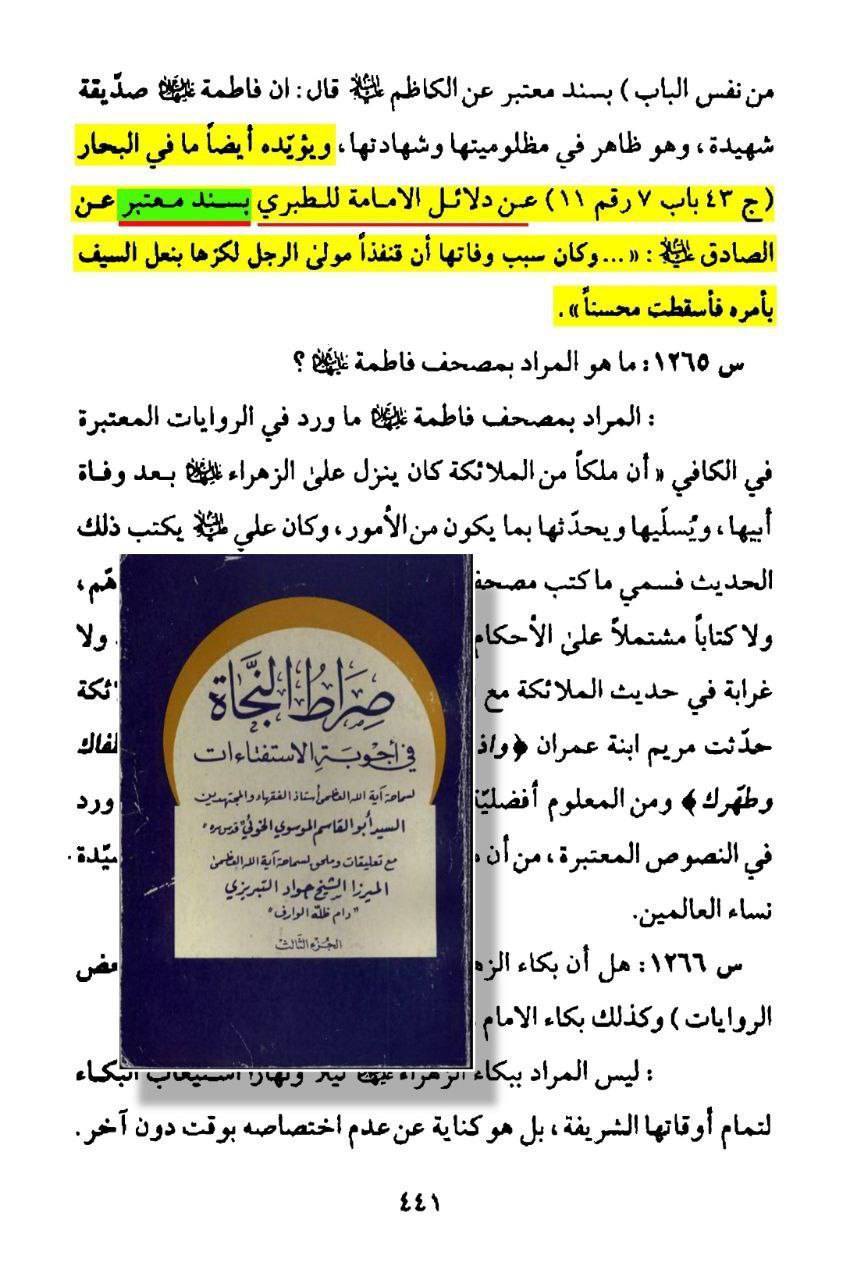 من نفس الباب) بسند معتبر عن الكاظم عليه السلام قال: ان فاطمة عليها السلام صدّيقة
شهيدة، وهو ظاهر في مظلوميتها وشهادتها، ويؤيّده أيضاً ما في البحار
(ج ٤٣ باب ٧ رقم ١١) عن دلائل الامامة للطبري بسند معتبر عن
الصادق عليه السلام: «...وكان سبب وفاتها أن قنفذاً مولىٰ الرجل لكزها بنعل السيف
بأمره فأسقطت محسناً».
س ١٢٦٥: ما هو المراد بمصحف فاطمة عليها السلام؟
: المراد بمصحف فاطمة عليها السلام ما ورد في الروايات المعتبرة
في الكافي «أن ملكاً من الملائكة كان ينزل علىٰ الزهراء عليها السلام بعد وفاة
أبيها، ويُسلّيها ويحدّثها بما يكون من الأمور، وكان علي عليه السلام يكتب ذلك
الحديث فسمي ما كتب مصحف
ولا كتاباً مشتملاً علىٰ الأحكام ولا
غرابة في حديث الملائكة مع
حدّثت مريم ابنة عمران ﴿واذ
وطهّرك﴾ ومن المعلوم أفضليّة ورد
في النصوص المعتبرة، من أن
نساء العالمين.
س ١٢٦٦: هل أن بكاء
الروايات) وكذلك بكاء الامام
: ليس المراد ببكاء الزهراء عليها السلام ليلاً ونهاراً استيعاب البكاء
لتمام أوقاتها الشريفة، بل هو كناية عن عدم اختصاصه بوقت دون آخر.
٤٤١
صراط النجاة
في أجوبة الاستفتاءات
لسماحة آية الله العظمى أستاذ الفقهاء والمجتهدين
السيد أبو القاسم الموسوي الخوئي "قدس سره"
مع تعليقات وملحق لسماحة آية الله العظمى
الميرزا الشيخ جواد التبريزي
"دام ظله الوارف"
الجزء الثالث